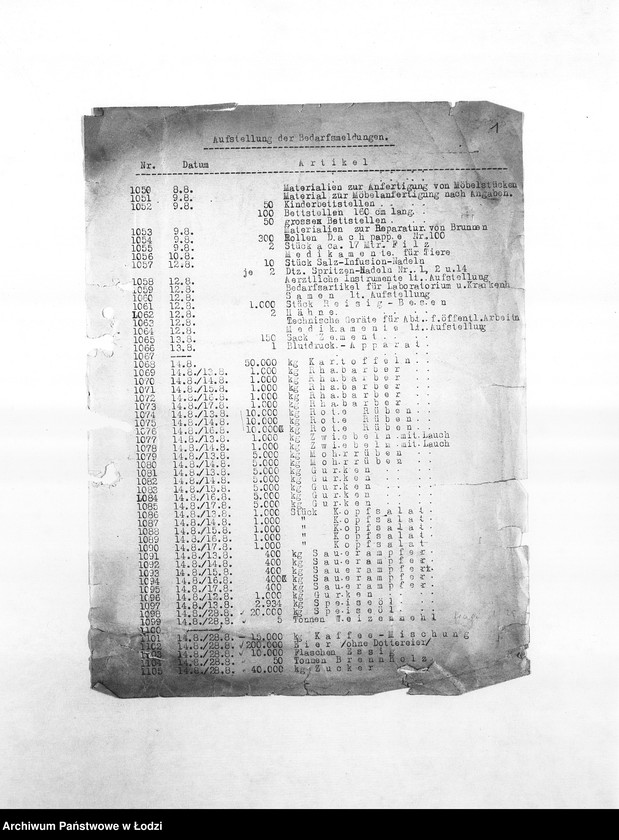 1
Aufstellung der Bedarfsmeldungen.
Nr. Datum Artikel
1050 8.8. Materialien zur Anfertigung von Möbelstücken
1051 9.8. Material zur Möbelanfertigung nach Angaben.
1052 9.8. 50 Kinderbettstellen
100 Bettstellen 160 cm lang.
50 grossex Bettstellen
1053 9.8. Materialien zur Reparatur von Brunnen
1054 9.8. 300 Rollen Dachpappe Nr.100
1055 9.8. 2 Stück a ca. 17 Mtr. Filz
1056 10.8. Medikamente für Tiere
1057 12.8. 10 Stück Salz-Infusion-Nadeln
je 2 Dtz. Spritzen-Nadeln Nr. 1, 2 u.14
1058 12.8. Aerztliche Instrumente lt. Aufstellung
1059 12.8. Bedarfsartikel für Laboratorium u.Krankenh
1060 12.8. Samen lt. Aufstellung
1061 12.8. 1.000 Stück Reisig-Besen
1062 12.8. 2 Hähne.
1063 12.8. Technische Geräte für Abt. f.öffentl.Arbeitn
1064 12.8. Medikamente lt. Aufstellung
1065 13.8. 150 Sack Zement
1066 13.8. 1 Blutdruck-Apparat
1067 ----
1068 14.8. 50.000 kg Kartoffeln
1069 14.8./13.8. 1.000 kg Rhabarber
1070 14.8./14.8. 1.000 kg Rhabarber
1071 14.8./15.8. 1.000 kg Rhabarber
1072 14.8./16.8. 1.000 kg Rhabarber
1073 14.8./17.8. 1.000 kg Rhabarber
1074 14.8./13.8. 10.000 kg Rote Rüben
1075 14.8./14.8. 10.000 kg Rote Rüben
1076 14.8./15.8. 10.000 kg Rote Rüben
1077 14.8./13.8. 1.000 kg Zwiebeln mit Lauch
1078 14.8./14.8. 1.000 kg Zwiebeln mit Lauch
1079 14.8./13.8. 5.000 kg Mohrrüben
1080 14.8./14.8. 5.000 kg Mohrrüben
1081 14.8./13.8. 5.000 kg Gurken
1082 14.8./14.8. 5.000 kg Gurken
1083 14.8./15.8. 5.000 kg Gurken
1084 14.8./16.8. 5.000 kg Gurken
1085 14.8./17.8. 5.000 kg Gurken
1086 14.8./13.8. 1.000 Stück Kopfsalat
1087 14.8./14.8. 1.000 " Kopfsalat
1088 14.8./15.8. 1.000 " Kopfsalat
1089 14.8./16.8. 1.000 " Kopfsalat
1090 14.8./17.8. 1.000 " Kopfsalat
1091 14.8./13.8. 400 kg Sauerampfer
1092 14.8./14.8. 400 kg Sauerampfer
1093 14.8./15.8. 400 kg Sauerampfer
1094 14.8./16.8. 400 kg Sauerampfer
1095 14.8./17.8. 400 kg Sauerampfer
1096 14.8./12.8. 1.000 kg Gurken
1097 14.8./13.8. 2.934 kg Speiseöl
1098 14.8./28.8. 20.000 kg Speiseöl
1099 14.8./28.8. 5 Tonnen Weizenmehl
1100 ----
1101 14.8./28.8. 15.000 kg Kaffee-Mischung
1102 14.8./28.8. 200.000 Eier /ohne Dottereier/
1103 14.8./28.8. 10.000 Flaschen Essig
1104 14.8./28.8. 50 Tonnen Brennholz
1105 14.8./28.8. 40.000 kg Zucker
Archiwum Państwowe w Łodzi